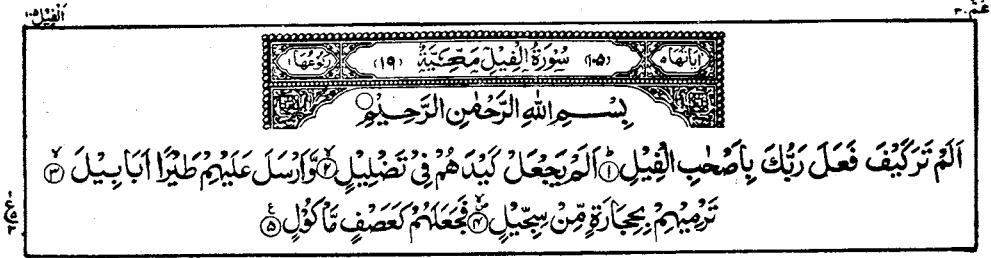 عمّ ٣٠
الفيل ١٠٥
اٰیاتها ٥ (١٠٥) سُوْرَةُ الْفِيْلِ مَكِّيَّةٌ (١٩) رُكُوْعُهَا ١
بِسْمِ اللّٰهِ الرَّحْمٰنِ الرَّحِيْمِ
اَلَمْ تَرَ كَيْفَ فَعَلَ رَبُّكَ بِاَصْحٰبِ الْفِيْلِ ۝۱ اَلَمْ يَجْعَلْ كَيْدَهُمْ فِيْ تَضْلِيْلٍ ۝۲ وَّاَرْسَلَ عَلَيْهِمْ طَيْرًا اَبَابِيْلَ ۝۳
تَرْمِيْهِمْ بِحِجَارَةٍ مِّنْ سِجِّيْلٍ ۝۴ فَجَعَلَهُمْ كَعَصْفٍ مَّاْكُوْلٍ ۝۵